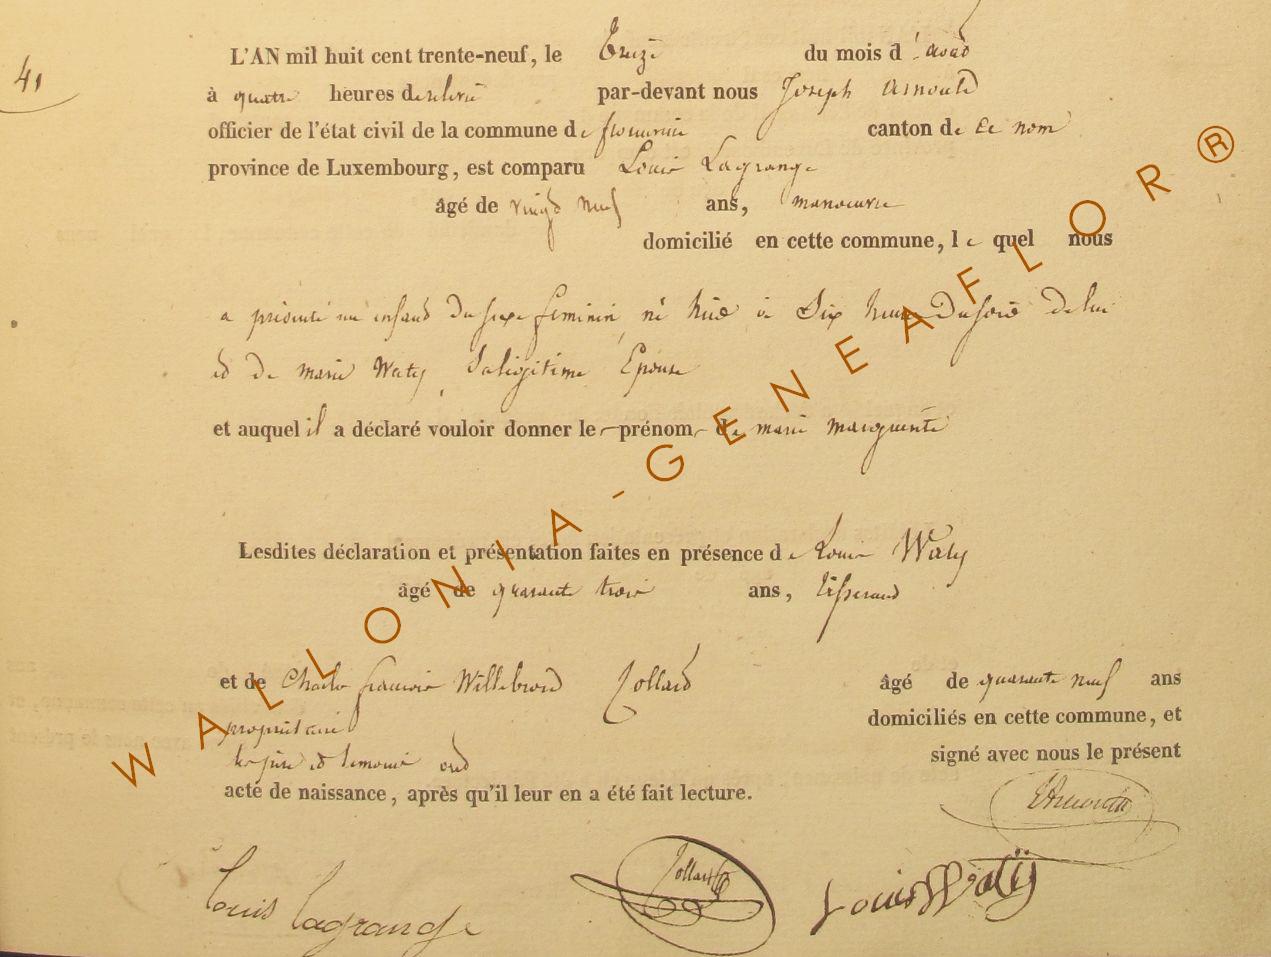 41
L'AN mil huit cent trente-neuf, le Treize du mois d'avril
à quatre heures de relevée par-devant nous Joseph Arnould
officier de l'état civil de la commune de canton de ce nom
province de Luxembourg, est comparu Louis Lagrange
âgé de vingt neuf ans, manoeuvre
domicilié en cette commune, le quel nous
a présenté un enfant du sexe feminin, né hier à Six heures Du soir de lui
et de marie Waty, Sa légitime Epouse
et auquel il a déclaré vouloir donner le prénom de marie marguerite
Lesdites déclaration et présentation faites en présence de Louis Waty
âgé de quarante trois ans, tisserand
et de Charles francois Willebrord Collard âgé de quarante neuf ans
propriétaire domiciliés en cette commune, et
les père et temoins ont signé avec nous le présent
acte de naissance, après qu'il leur en a été fait lecture.
Louis Lagrange Collard Louis Watÿ
WALLONIA-GENEAFLOR®